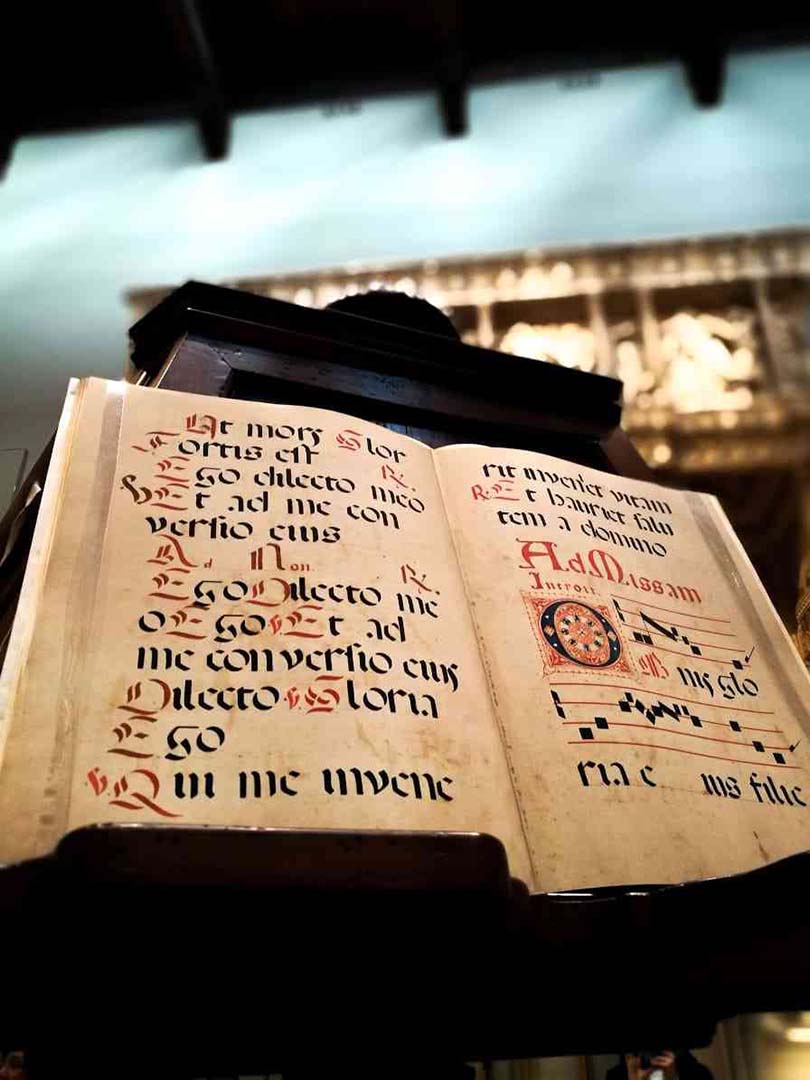 Ut mors Glor
Fortis est R.
Ego dilecto meo
Et ad me con
versio eius
Ad Non
Ego Dilecto me R.
o Ego v Et ad
me conversio eius
Dilecto v Gloria
Ego
v Qui me invene
rit inveniet vitam
R. Et hauriet salu
tem a domino
Ad Missam
Introit.
O mnis glo
ria e ius filie